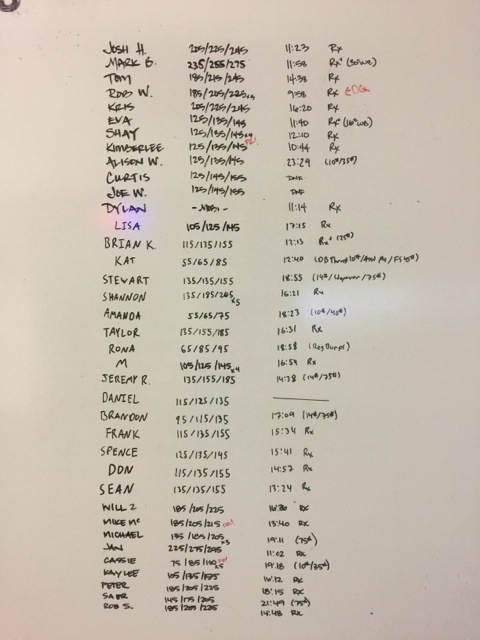 JOSH H. 205/225/245 11:23 Rx
MARK B. 235/255/275 11:58 Rx+ (30#WB)
TOM 185/215/245 14:38 Rx
ROB W. 185/205/225x4 9:58 Rx
KRIS 205/225/245 16:20 Rx
EVA 125/135/145 11:40 Rx+ (16#WB)
SHAY 125/135/145x4 12:10 Rx
KIMBERLEE 125/135/145 PR! 10:44 Rx
ALISON W. 125/135/145 23:29 (10#/35#)
CURTIS 125/145/155 DNF
JOE W. 125/145/155 DNF
DYLAN 11:14 Rx
LISA 105/125/145 17:15 Rx
BRIAN K. 115/135/155 13:13 Rx+ (25#)
KAT 55/65/85 12:40
STEWART 135/135/155 18:55 (14#/Stepover/75#)
SHANNON 135/185/205x5 16:21 Rx
AMANDA 55/65/75 18:23 (10#/40#)
TAYLOR 135/155/185 16:31 Rx
RONA 65/85/95 18:58 (Reg Burps)
M 105/125/145x4 16:54 Rx
JEREMY R. 135/155/185 14:38 (14#/75#)
DANIEL 115/125/135
BRANDON 95/115/135 17:09 (14#/75#)
FRANK 115/135/155 15:34 Rx
SPENCE 125/135/145 15:41 Rx
DON 115/135/155 14:57 Rx
SEAN 135/135/155 13:24 Rx
WILL Z 185/205/225 16:30 Rx
MIKE MC 185/205/215 PR! 13:40 Rx
MICHAEL 155/185/205x3 19:11 (75#)
JAN 225/275/295 11:02 Rx
CASSIE 75/85/110x5 PR! 19:18 (10#/35#)
KAYLEE 105/135/155 16:12 Rx
PETER 185/205/225 18:15 Rx
145/175/205 21:49 (75#)
ROB S. 185/205/225 14:48 Rx